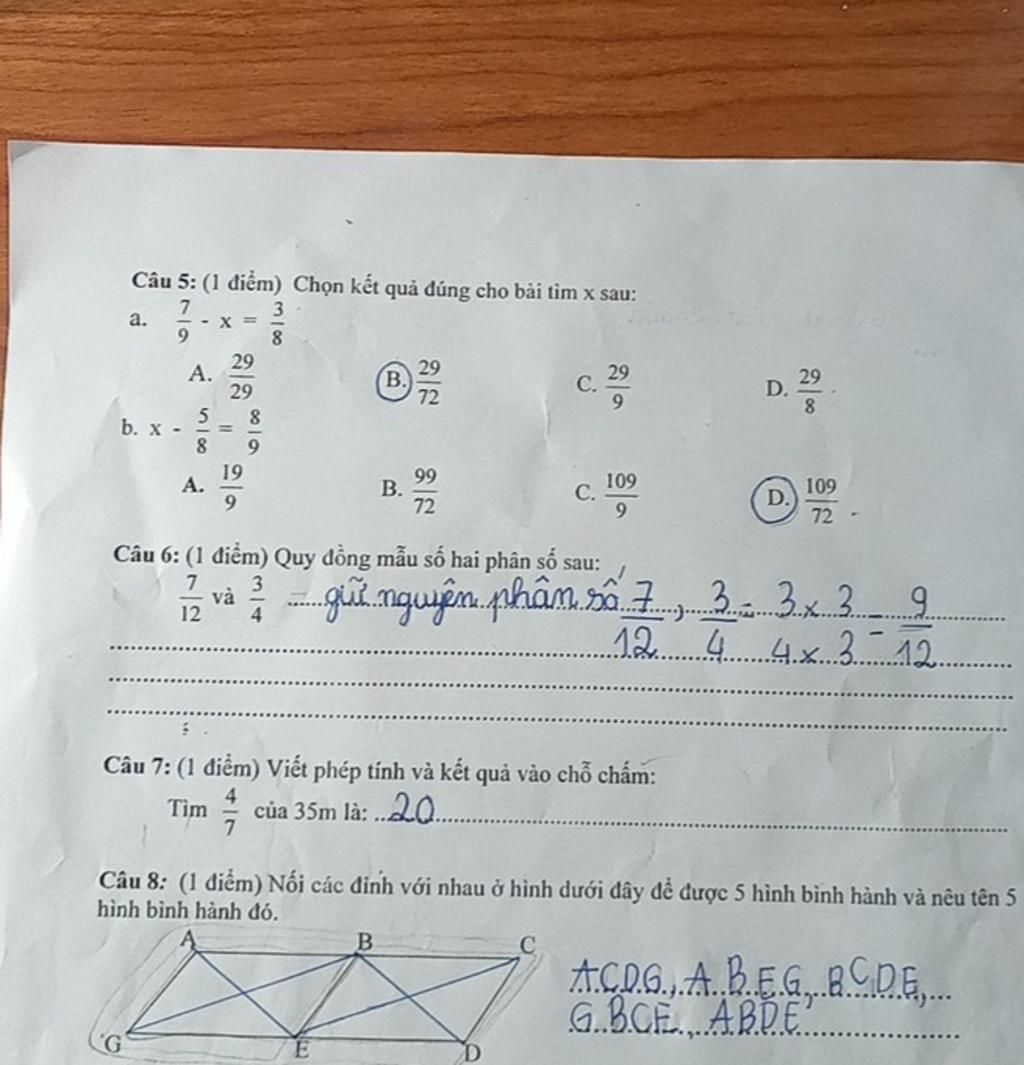 Câu 5: (1 điểm) Chọn kết quả đúng cho bài tìm x sau:
a. 7/9 - x = 3/8
A. 29/29 B. 29/72 C. 29/9 D. 29/8
b. x - 5/8 = 8/9
A. 19/9 B. 99/72 C. 109/9 D. 109/72
Câu 6: (1 điểm) Quy đồng mẫu số hai phân số sau:
7/12 và 3/4 = giữ nguyên phân số 7/12, 3/4 = 3 x 3/4 x 3 = 9/12
Câu 7: (1 điểm) Viết phép tính và kết quả vào chỗ chấm:
Tìm 4/7 của 35m là: 20
Câu 8: (1 điểm) Nối các đỉnh với nhau ở hình dưới đây để được 5 hình bình hành và nêu tên 5
hình bình hành đó.
A B C
ACDG, ABEG, BCDE,
GBCE, ABDE
G E D